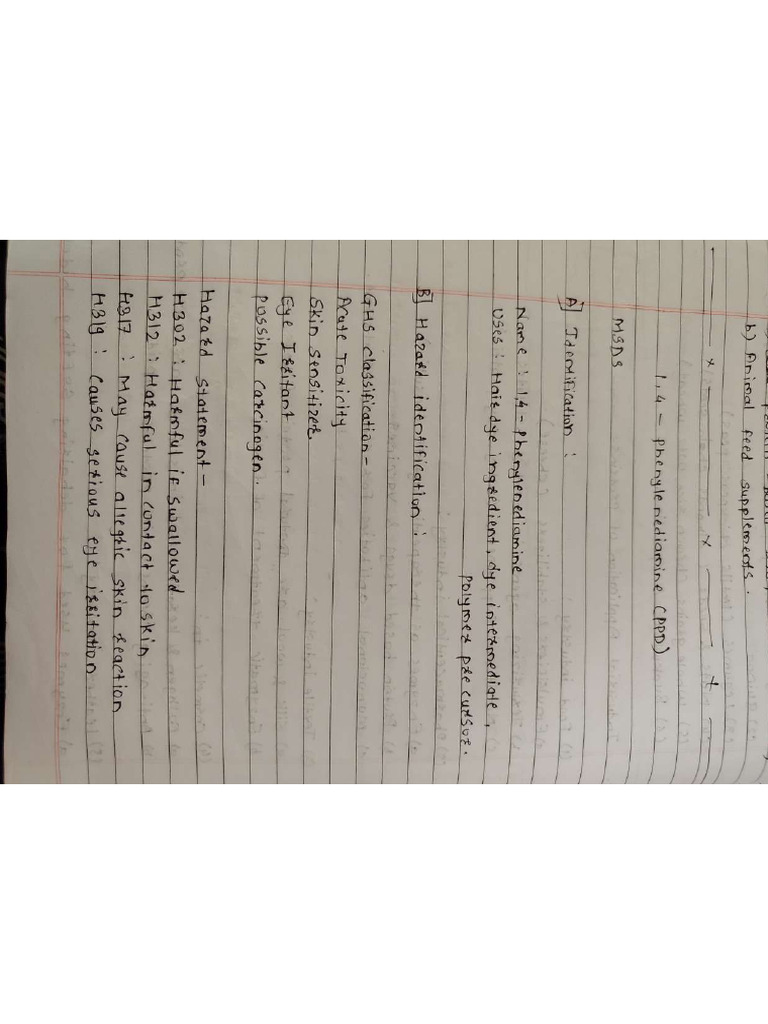 b) Animal feed supplements.
1,4 - phenylenediamine (PPD)
MSDS
A] Identification :
Name : 1,4 - phenylenediamine
Uses : Hair dye ingredient, dye intermediate,
polymer precursor.
B] Hazard identification :
GHS classification -
Acute Toxicity
Skin sensitizer
Eye Irritant
possible carcinogen.
Hazard statement -
H302 : Harmful if swallowed
H312 : Harmful in contact to skin
H317 : May cause alleghic skin reaction
H319 : Causes serious eye irritation